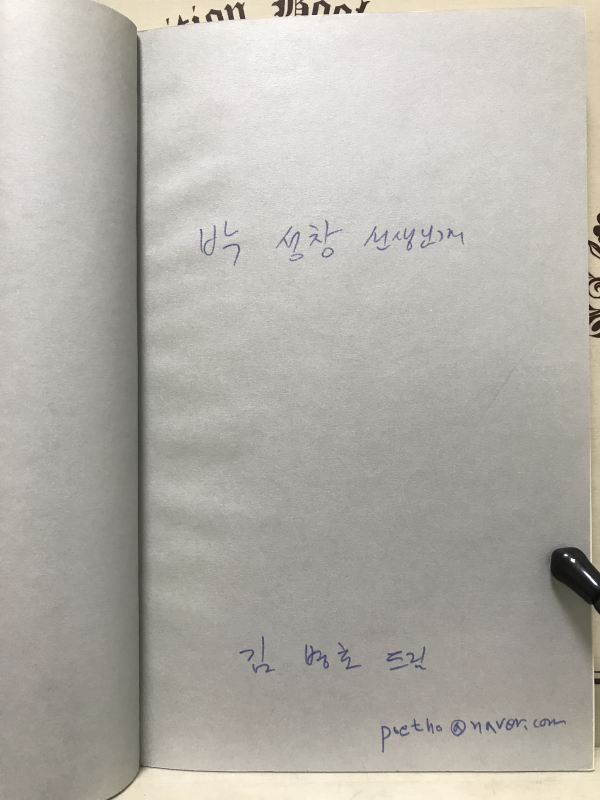 ition Book
박 성창 선생님께
김 병호 드림
poetho@naver.com